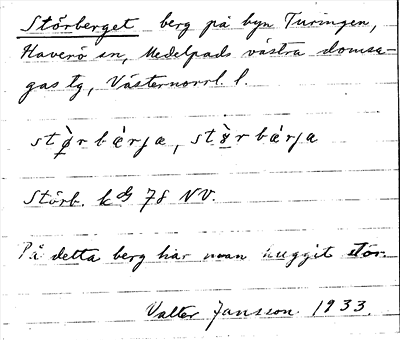 Störberget berg på byn Turingen,
Haverö sn, Medelpads västra domsa-
gas tg, Västernorrl. l.
stø̀rbærja, stö̀rbærja
Störb. kds 78 NV.
På detta berg har man huggit stör.
Valter Jansson 1933.